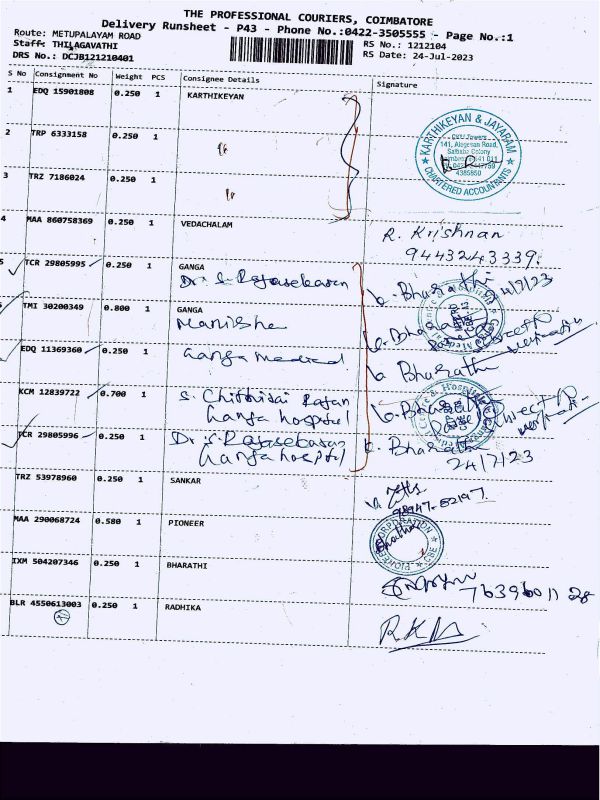 THE PROFESSIONAL COURIERS, COIMBATORE
Delivery Runsheet - P43 - Phone No.:0422-3505555 - Page No.:1
Route: METUPALAYAM ROAD
Staff: THILAGAVATHI
DRS No.: DCJB121210401
RS No.: 1212104
RS Date: 24-Jul-2023
S No Consignment No Weight PCS Consignee Details Signature
1 EDQ 15901808 0.250 1 KARTHIKEYAN
2 TRP 6333158 0.250 1 "
3 TRZ 7186024 0.250 1 "
KARTHIKEYAN & JAYARAM
141, Alagesan Road,
Saibaba Colony
4385850
CHARTERED ACCOUNTANTS
4 MAA 860758369 0.250 1 VEDACHALAM R. Krishnan
9443243339.
5 TCR 29805995 0.250 1 GANGA
Dr. S. Rajasekaran b. Bharathi 24/7/23
TMI 30200349 0.800 1 GANGA
Manisha
EDQ 11369360 0.250 1 Ganga medical b. Bharathi
KCM 12839722 0.700 1 S. Chithirai Rajan
Ganga hospital
TCR 29805996 0.250 1 Dr. S. Rajasekaran b. Bharathi
Ganga hospital 24/7/23
TRZ 53978960 0.250 1 SANKAR
98947-82197
MAA 290068724 0.580 1 PIONEER
CORPORATION
IXM 504207346 0.250 1 BHARATHI
BLR 4550613003 0.250 1 RADHIKA